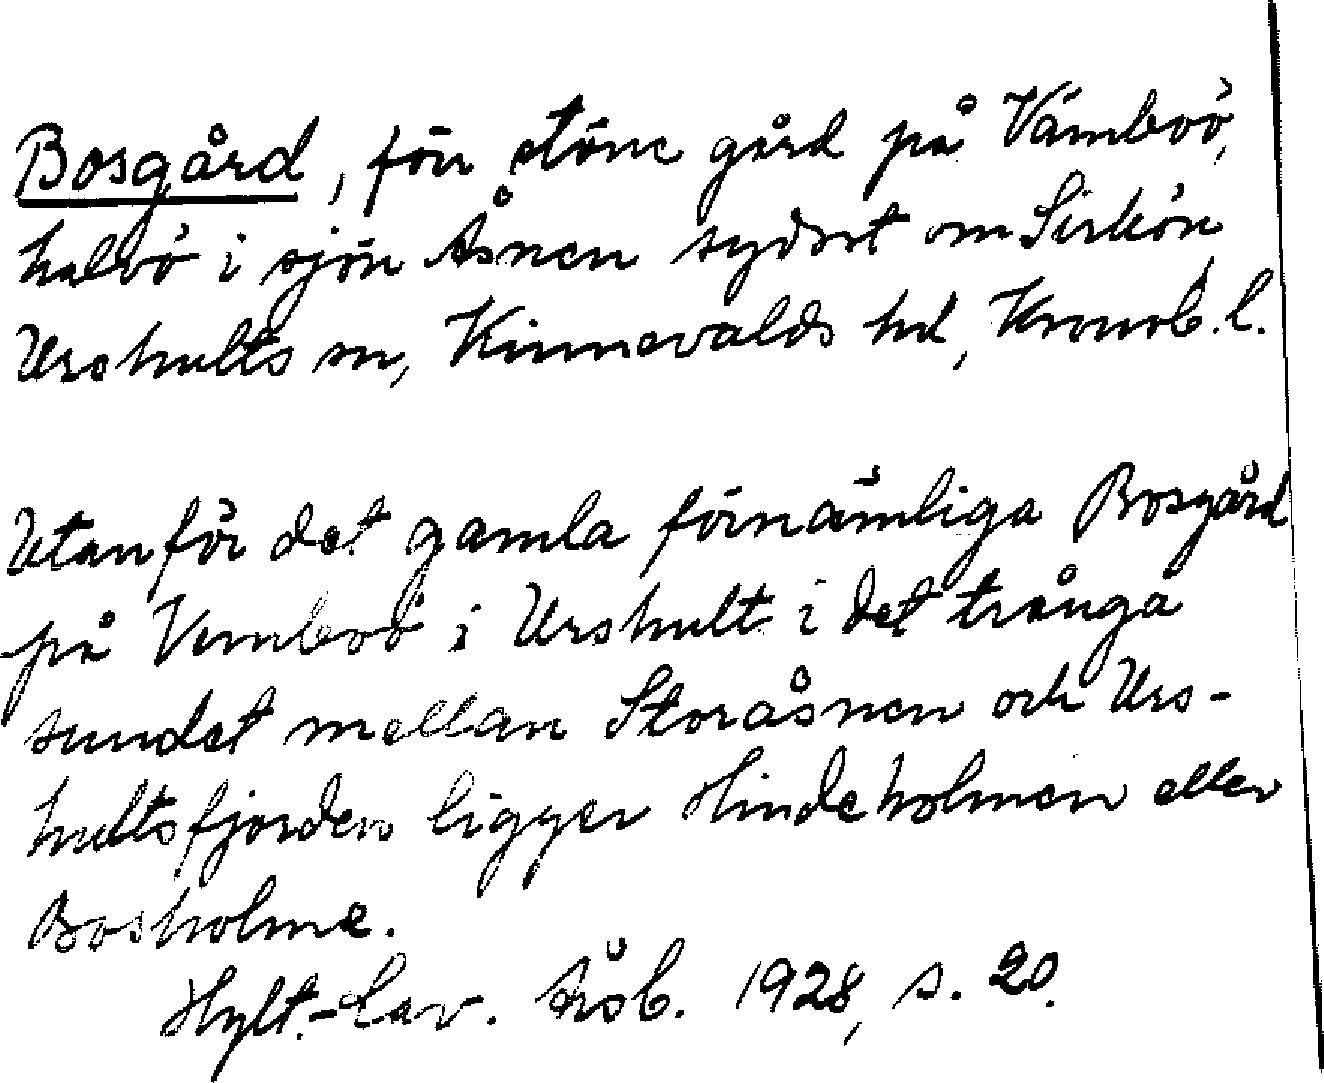 Bosgård, förr större gård på Vämboö,
halvö i sjön Åsnen sydost om Sirkön,
Urshults sn, Kinnevalds hd, Kronob. l.
Utanför det gamla förnämliga Bosgård
på Vemboö i Urshult i det trånga
sundet mellan Storåsnen och Urs-
hultsfjorden ligger Hindeholmen eller
Bosholme.
Hylt.-Cav. Årsb. 1928, s. 20.